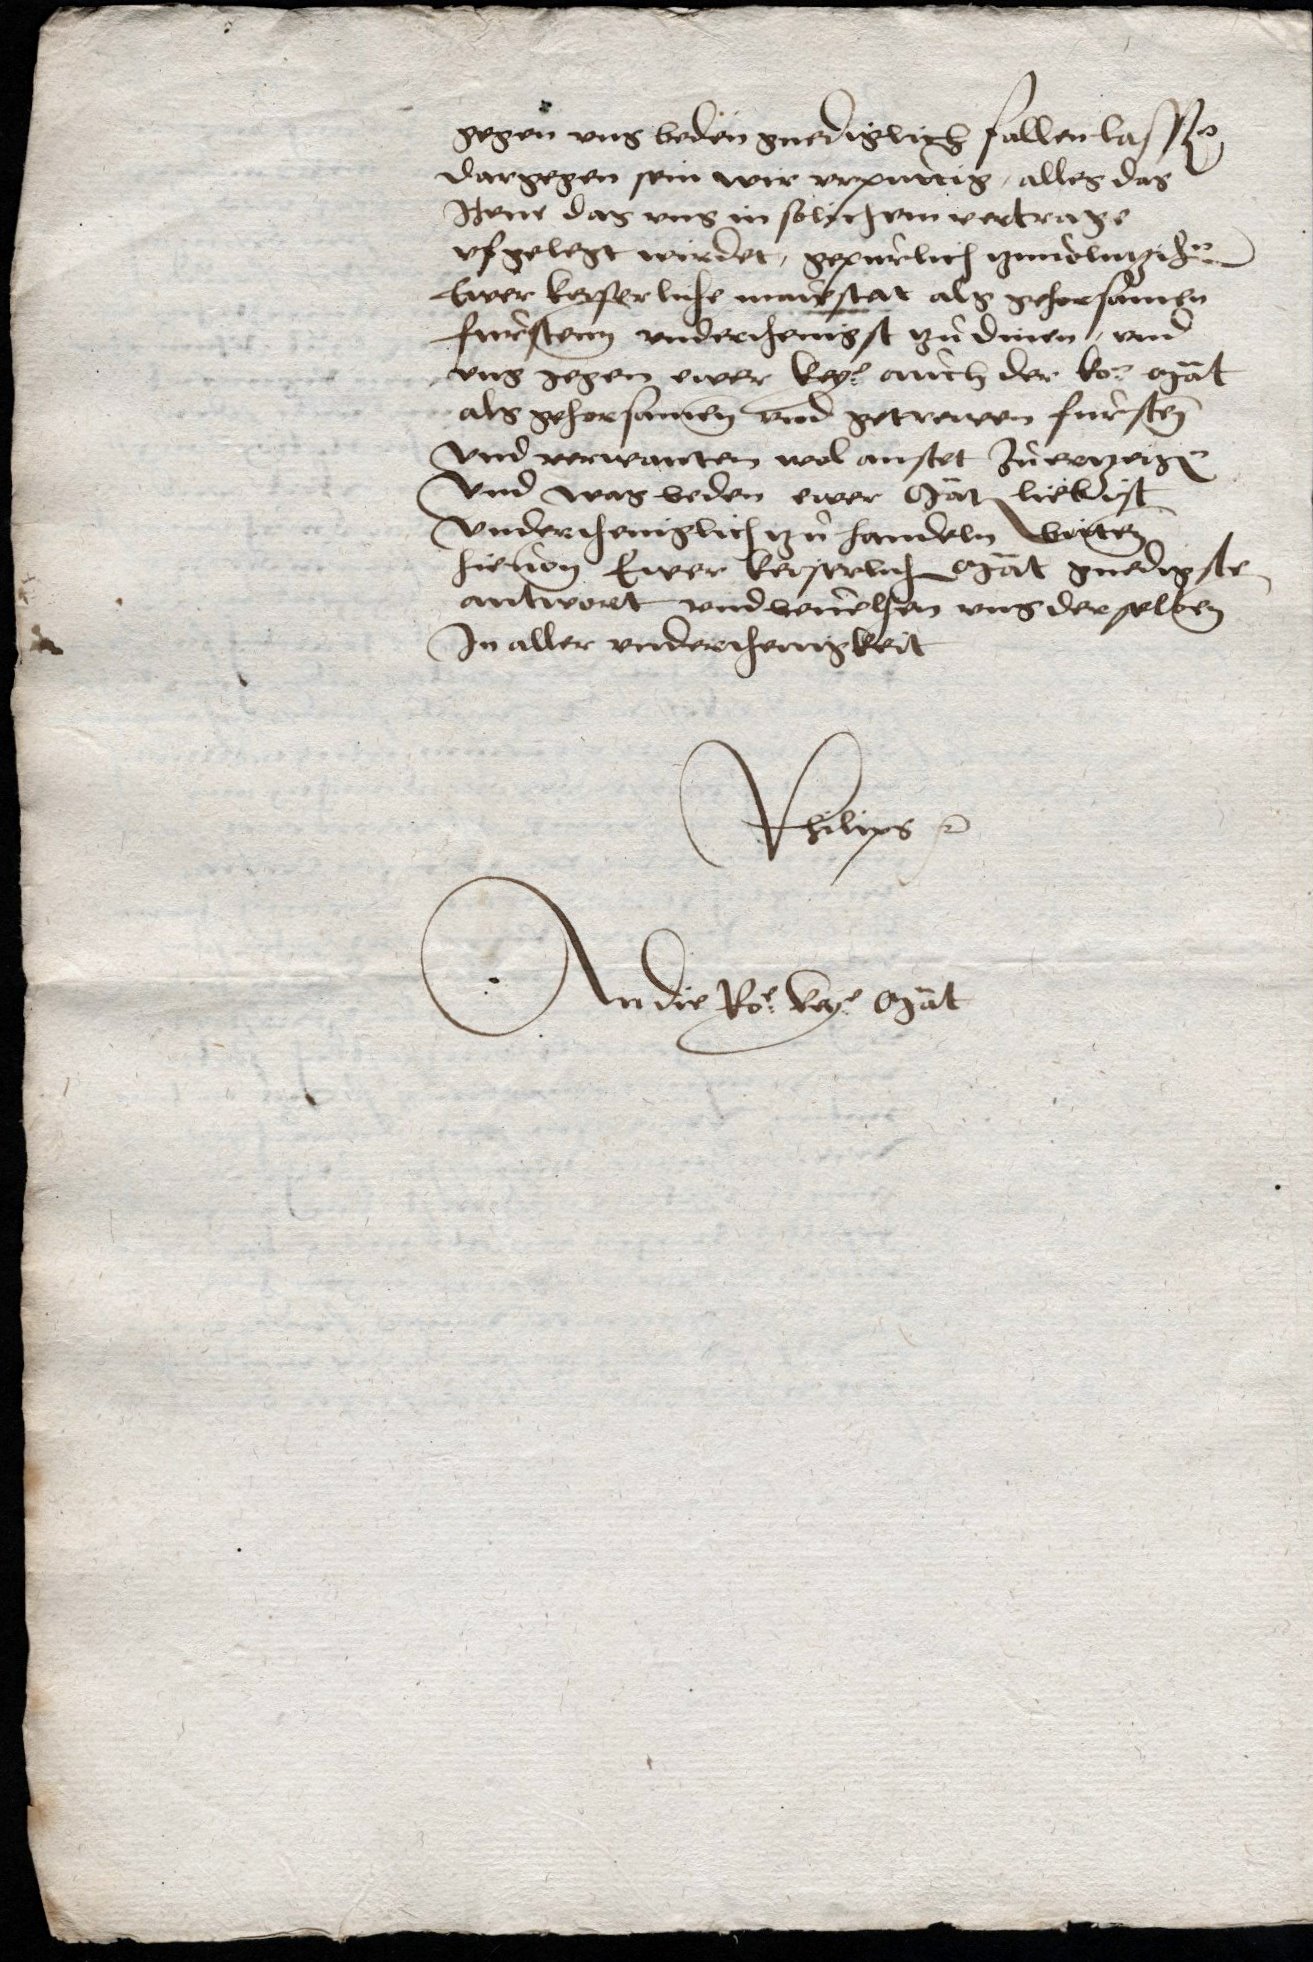 gegen uns beden gnediglich fallen lassen
dargegen sein wir urputtig, alles das
Jhene das uns in solichem vertrage
ufgelegt wirdet, gepurlich zuuolntzihen
Ewer keiserliche maiestat als gehorsamen
fursten underthenigst zu dinen, und
uns gegen ewer key.e auch der ko.e Mat
als gehorsamen und getrewen fursten
und verwanten wol anstet zu erzeigen
Und was beden ewer Mat lieb ist
Undertheniglich zu handeln bitten
hieuon Ewer keiserlich Mat gnedigste
antwort und beuelhen uns derselben
In aller underthenigkeit
Philips
An die Ro.e key.e Mat